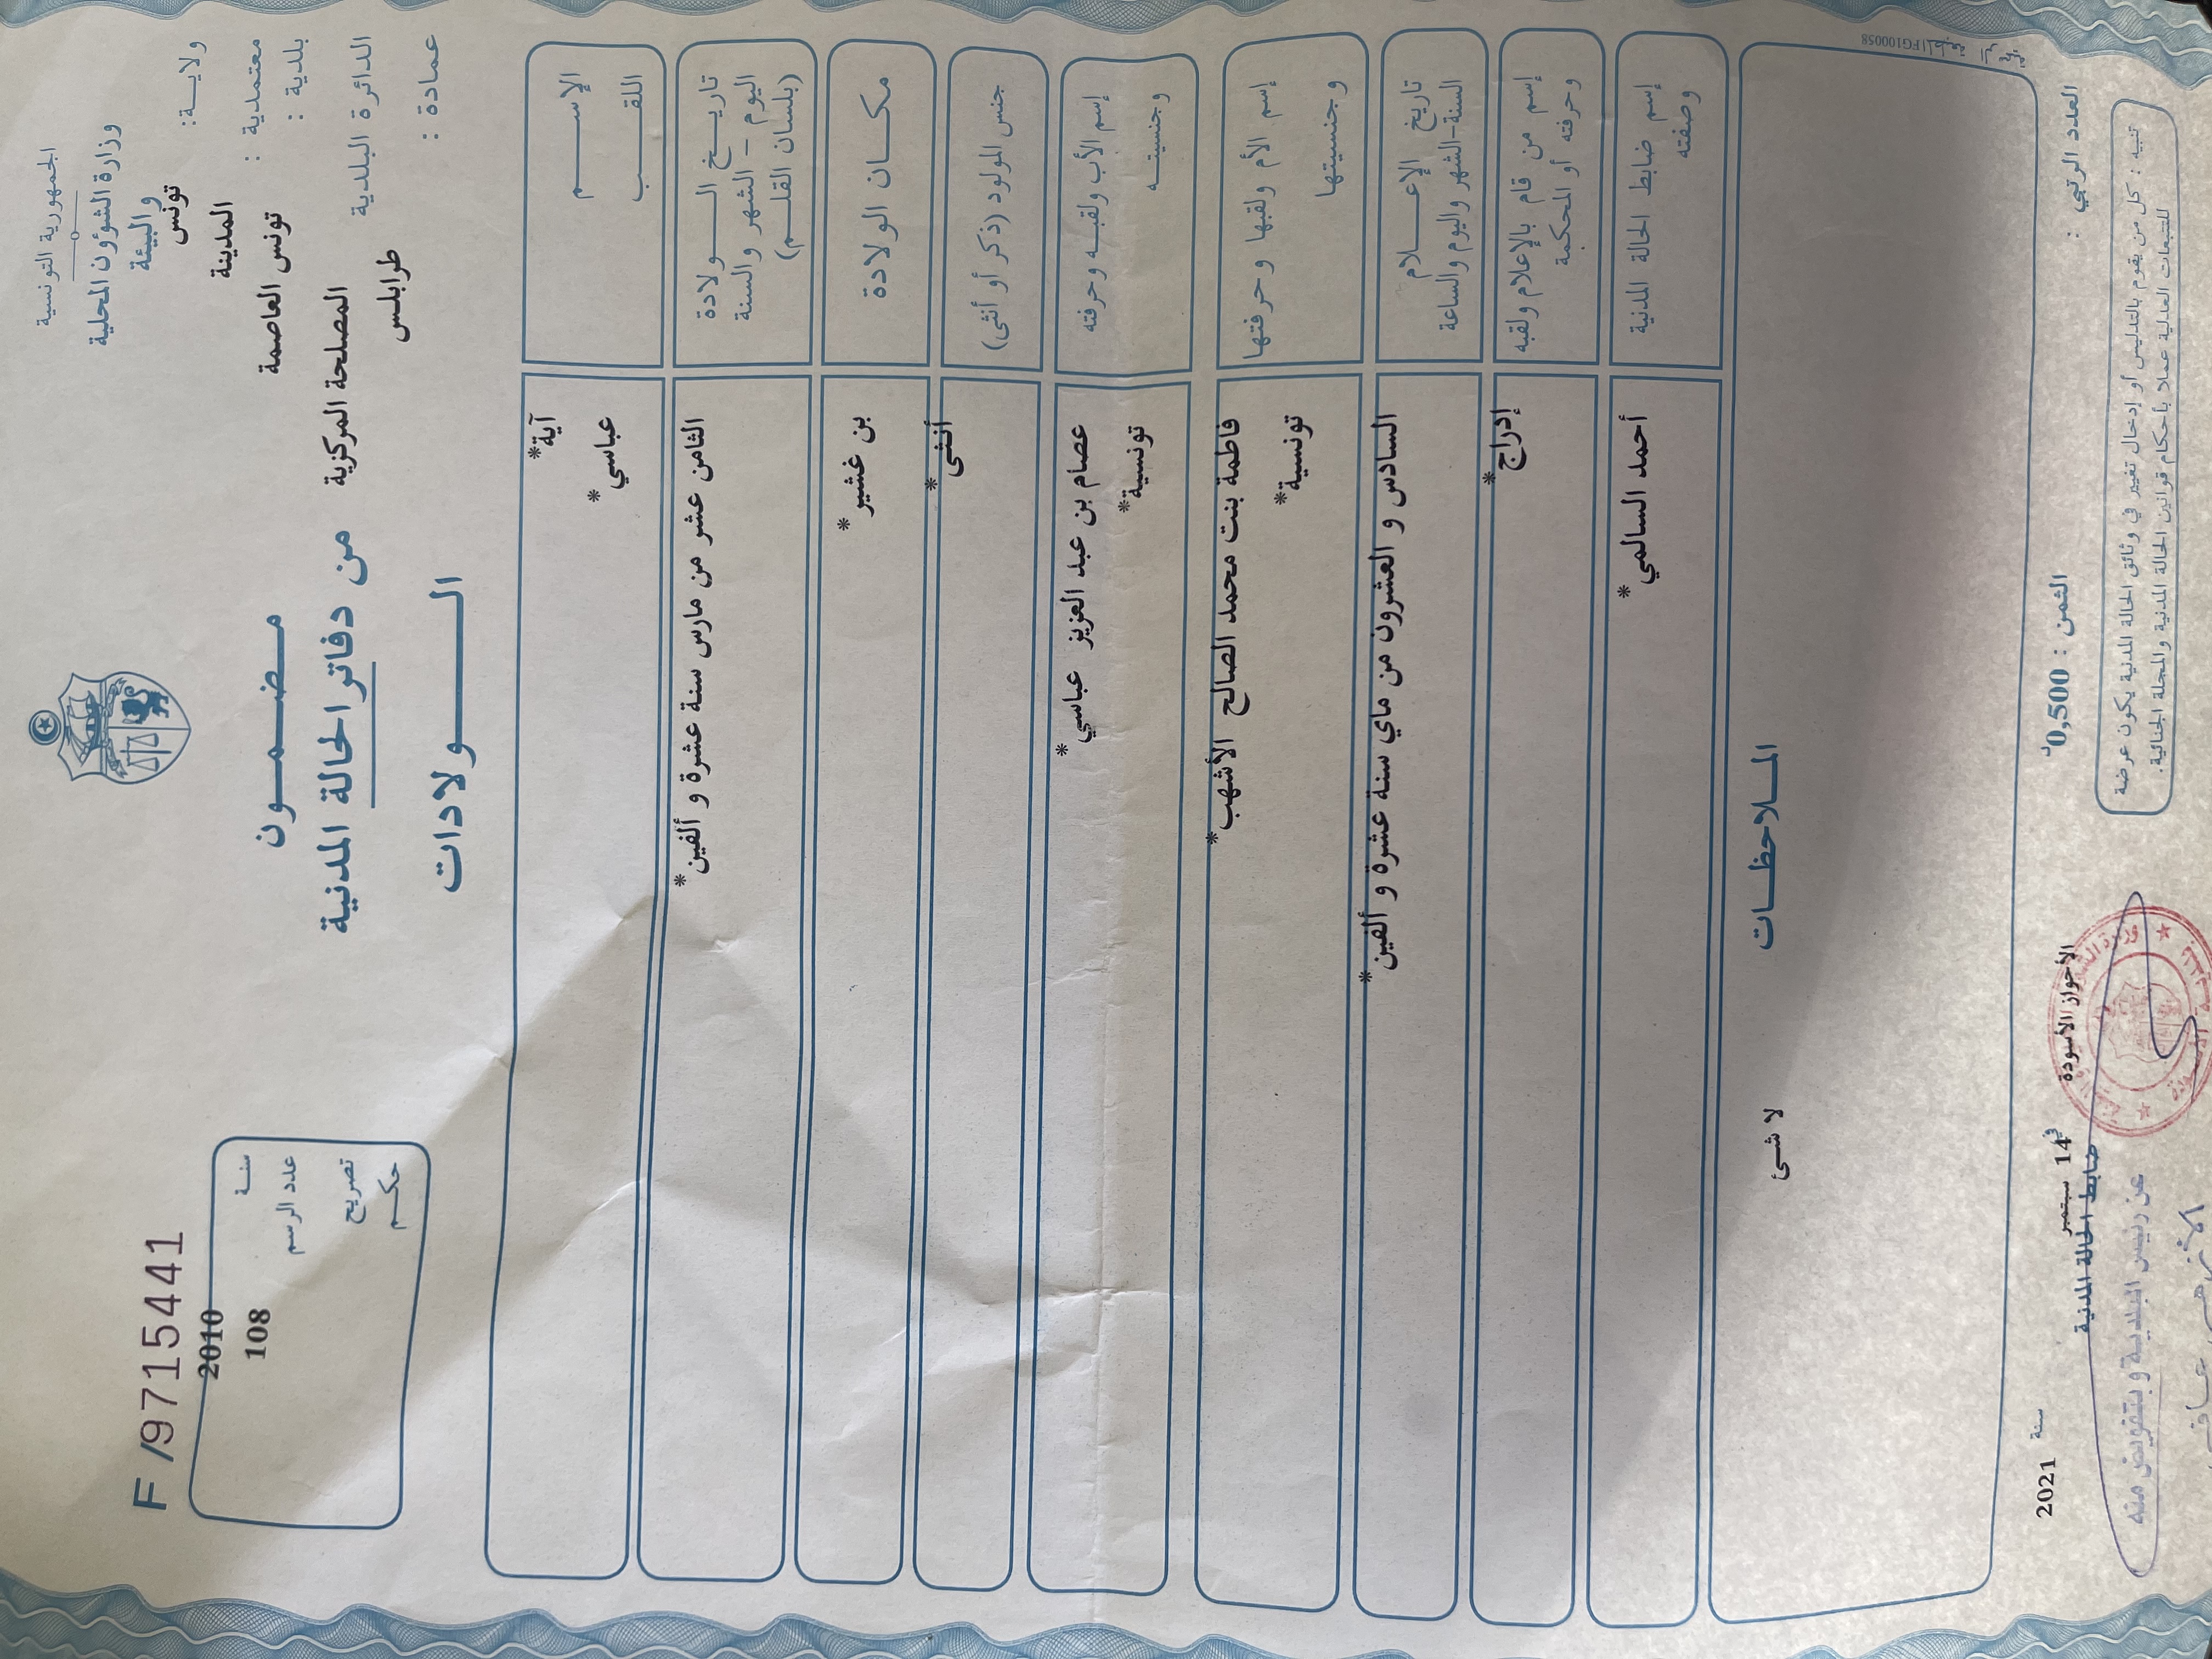 الجمهورية التونسية
وزارة الشؤون المحلية
والبيئة
ولاية: تونس
معتمدية : المدينة
بلدية : تونس العاصمة
الدائرة البلدية المصلحة المركزية
عمادة : طرابلس
مضمون
من دفاتر الحالة المدنية
الولادات
F /9715441
سنة 2010
عدد الرسم 108
تصريح
حكم
الإسم آية*
اللقب عباسي*
تاريخ الولادة
اليوم - الشهر والسنة
(بلسان القلم)
الثامن عشر من مارس سنة عشرة و ألفين*
مكان الولادة بن غشير*
جنس المولود (ذكر أو أنثى) أنثى*
إسم الأب ولقبه وحرفته عصام بن عبد العزيز عباسي*
وجنسيته تونسية*
إسم الأم ولقبها وحرفتها فاطمة بنت محمد الصالح الأشهب*
وجنسيتها تونسية*
تاريخ الإعلام
السنة-الشهر واليوم والساعة
السادس و العشرون من ماي سنة عشرة و ألفين*
إسم من قام بالإعلام ولقبه
وحرفته أو المحكمة
إدراج*
إسم ضابط الحالة المدنية
وصفته
أحمد السالمي*
الملاحظات
لا شئ
FG100058
العدد الرتبي :
الثمن : 0,500د
الأحواز الأسودة في 14 سبتمبر سنة 2021
ضابط الحالة المدنية
تنبيه : كل من يقوم بالتدليس أو إدخال تغيير في وثائق الحالة المدنية يكون عرضة
للتتبعات العدلية عملا بأحكام قوانين الحالة المدنية والمجلة الجنائية.
عن رئيس البلدية وبتفويض منه